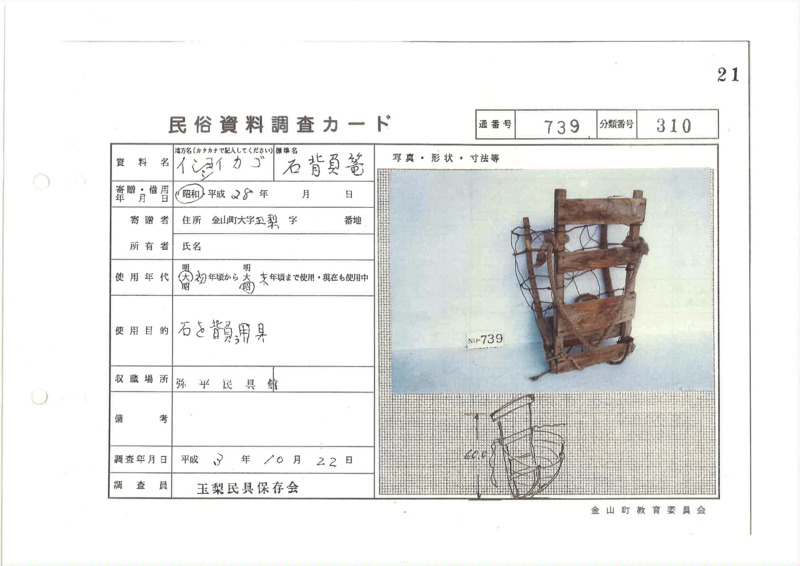 21
民俗資料調査カード
通番号 739 分類番号 310
資料名 地方名(カタカナで記入してください) イショイカゴ 標準名 石背負篭
写真・形状・寸法等
寄贈・借用年月日 昭和・平成 28年 月 日
寄贈者 住所 金山町大字玉梨 字 番地
所有者 氏名
使用年代 明大昭 初年頃から 明大昭 末年頃まで使用・現在も使用中
使用目的 石を背負う用具
No.739
収蔵場所 弥平民具館
備考
60.0
調査年月日 平成 3年 10月 22日
調査員 玉梨民具保存会
金山町教育委員会